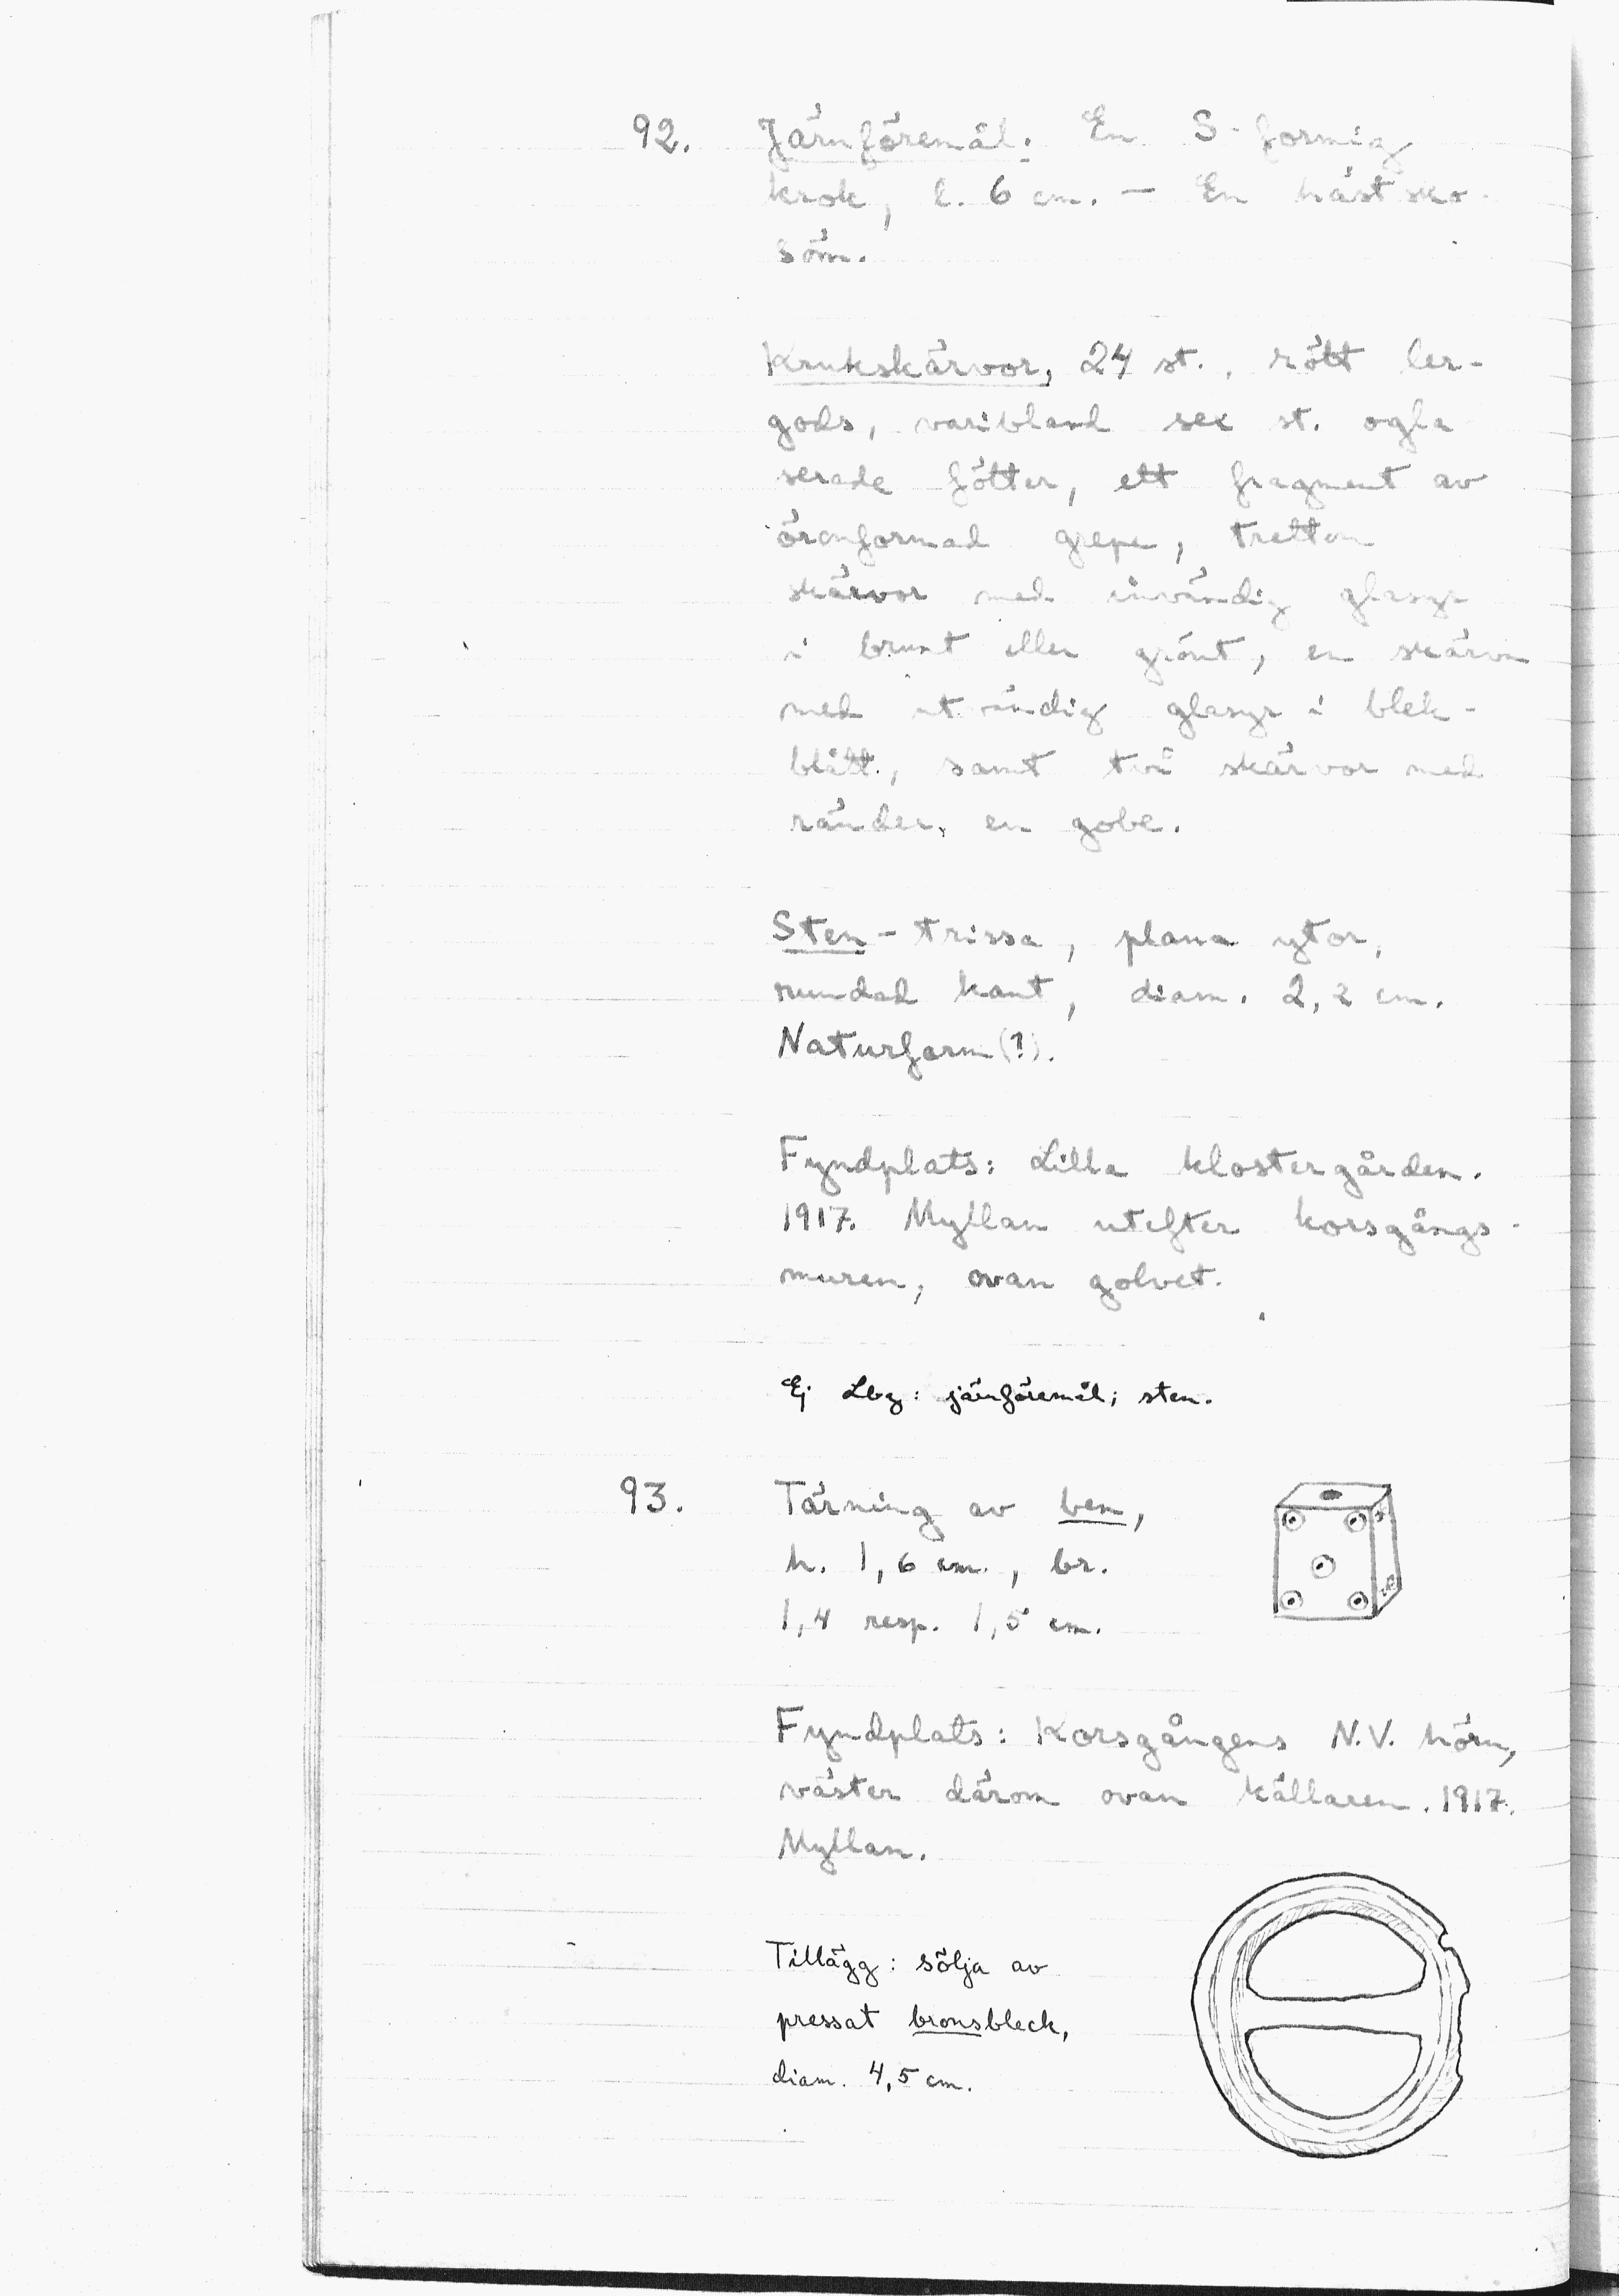 92. Järnföremål. En S-formig
krok, l. 6 cm. — En hästsko-
söm.
Krukskärvor, 24 st., rött ler-
gods, varibland sex st. ogla
serade fötter, ett fragment av
öronformad grepe, tretton
skärvor med invändig glasyr
i brunt eller grönt, en skärva
med utvändig glasyr i blek-
blått, samt två skärvor med
ränder, en gobe.
Sten-trissa, plana ytor,
rundad kant, diam. 2,2 cm.
Naturform (?).
Fyndplats: Lilla klostergården.
1917. Myllan utefter korsgångs-
muren, ovan golvet.
Ej Lbg: järnföremål; sten.
93. Tärning av ben,
h. 1,6 cm., br.
1,4 resp. 1,5 cm.
Fyndplats: Korsgångens N.V. hörn,
väster därom ovan källaren. 1917.
Myllan.
Tillägg: sölja av
pressat bronsbleck,
diam. 4,5 cm.